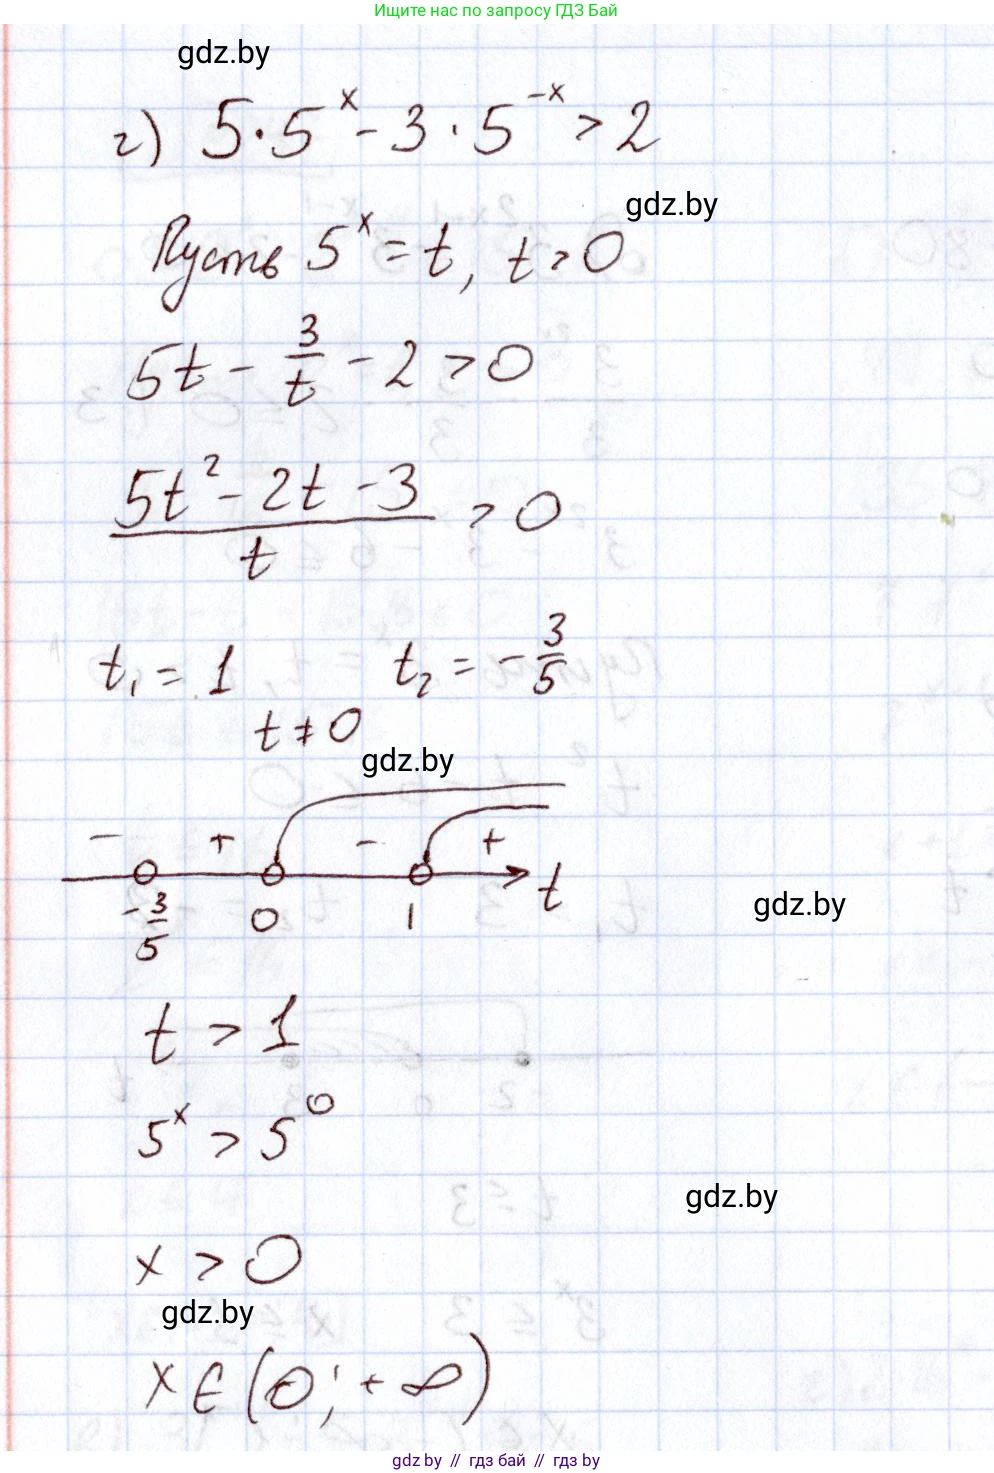 Ищите нас по запросу ГДЗ Бай
gdz.by
г) 5·5^x - 3·5^-x > 2
gdz.by
Пусть 5^x = t, t > 0
5t - 3/t - 2 > 0
(5t² - 2t - 3)/t > 0
t₁ = 1 t₂ = -3/5
t ≠ 0
gdz.by
- + - +
-3/5 0 1 t
gdz.by
t > 1
5^x > 5^0
gdz.by
x > 0
gdz.by
x ∈ (0; +∞)
gdz.by // гдз бай // гдз by